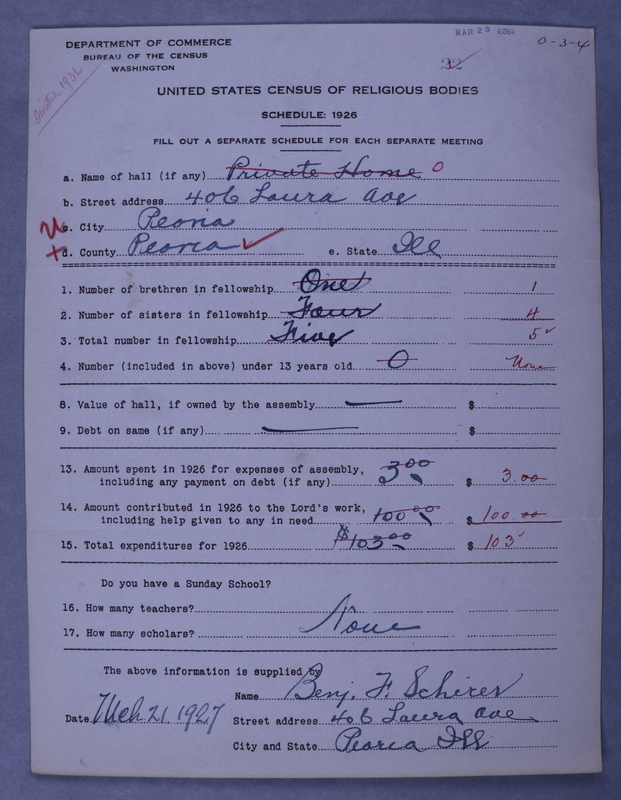 DEPARTMENT OF COMMERCE
BUREAU OF THE CENSUS
WASHINGTON
MAR 23
22
0-3-4
1936
UNITED STATES CENSUS OF RELIGIOUS BODIES
SCHEDULE: 1926
FILL OUT A SEPARATE SCHEDULE FOR EACH SEPARATE MEETING
a. Name of hall (if any) Private Home 0
b. Street address 406 Laura Ave
c. City Peoria
d. County Peoria e. State Ill
1. Number of brethren in fellowship One 1
2. Number of sisters in fellowship Four 4
3. Total number in fellowship Five 5
4. Number (included in above) under 13 years old 0 None
8. Value of hall, if owned by the assembly $
9. Debt on same (if any) $
13. Amount spent in 1926 for expenses of assembly,
including any payment on debt (if any) 3.00 $ 3.00
14. Amount contributed in 1926 to the Lord's work,
including help given to any in need 100.00 $ 100.00
15. Total expenditures for 1926 $103.00 $ 103
Do you have a Sunday School?
16. How many teachers?
None
17. How many scholars?
The above information is supplied by
Name Benj. F. Schirer
Date Mch 21 1927 Street address 406 Laura Ave
City and State Peoria Ill